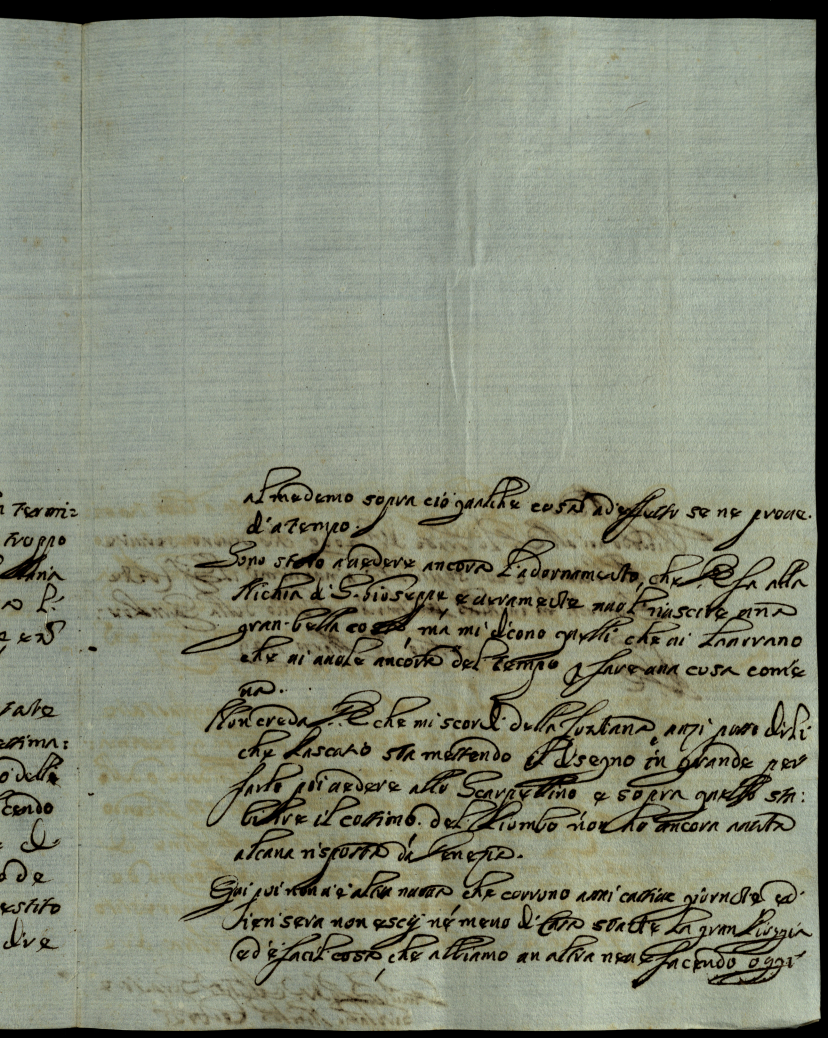 n termi=
troppo
a l'
tate
ssima:
o delle
cendo
e di
o de
estito
dire
al medemo sopra ciò qualche cosa ad effetto se ne prove.
da tempo.
Sono stato a vedere ancora l'adornamento, che fa alla
Nichia di S. Gioseppe e veramente vuol riuscire una
gran bella cosa, mà mi dicono quelli che vi lavorano
che vi vuole ancora del tempo p. fare una cosa come
va.
Non creda che mi scordi della fontana, anzi posso dirli
che Lascaro sta mettendo il disegno in grande per
farlo poi vedere allo Scarpellino e sopra quello sta:
bilire il cottimo. del Piombo non ho ancora avuta
alcuna risposta da Venezia.
Qui poi non v'è altra nuova che corrono anzi cattive giornate ed
ier sera non escij né meno di Casa stante la gran Pioggia
ed è facil cosa, che abbiamo un altra neve facendo oggi